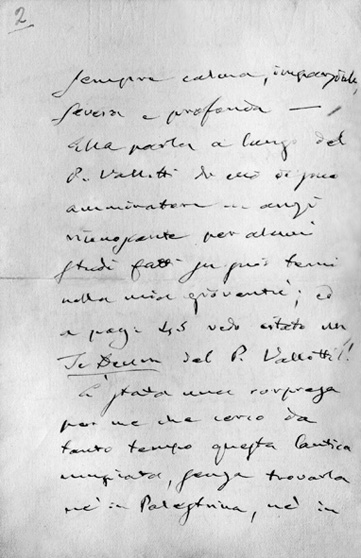 2
sempre calma, imparziale,
severa e profonda —
Ella parla a lungo del
P. Vallotti di cui di fui
ammiratore — anzi
riconoscente per alcuni
studi fatti su suoi temi
nella mia gioventù; ed
a pag. 45 vedo citato un
Te Deum del P. Vallotti!!
È stata una sorpresa
per me che cerco da
tanto tempo questa Cantica
musicata, senza trovarla
né in Palestrina, né in